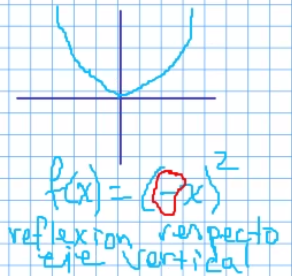 f(x) = (-x)²
reflexion respecto
eje vertical